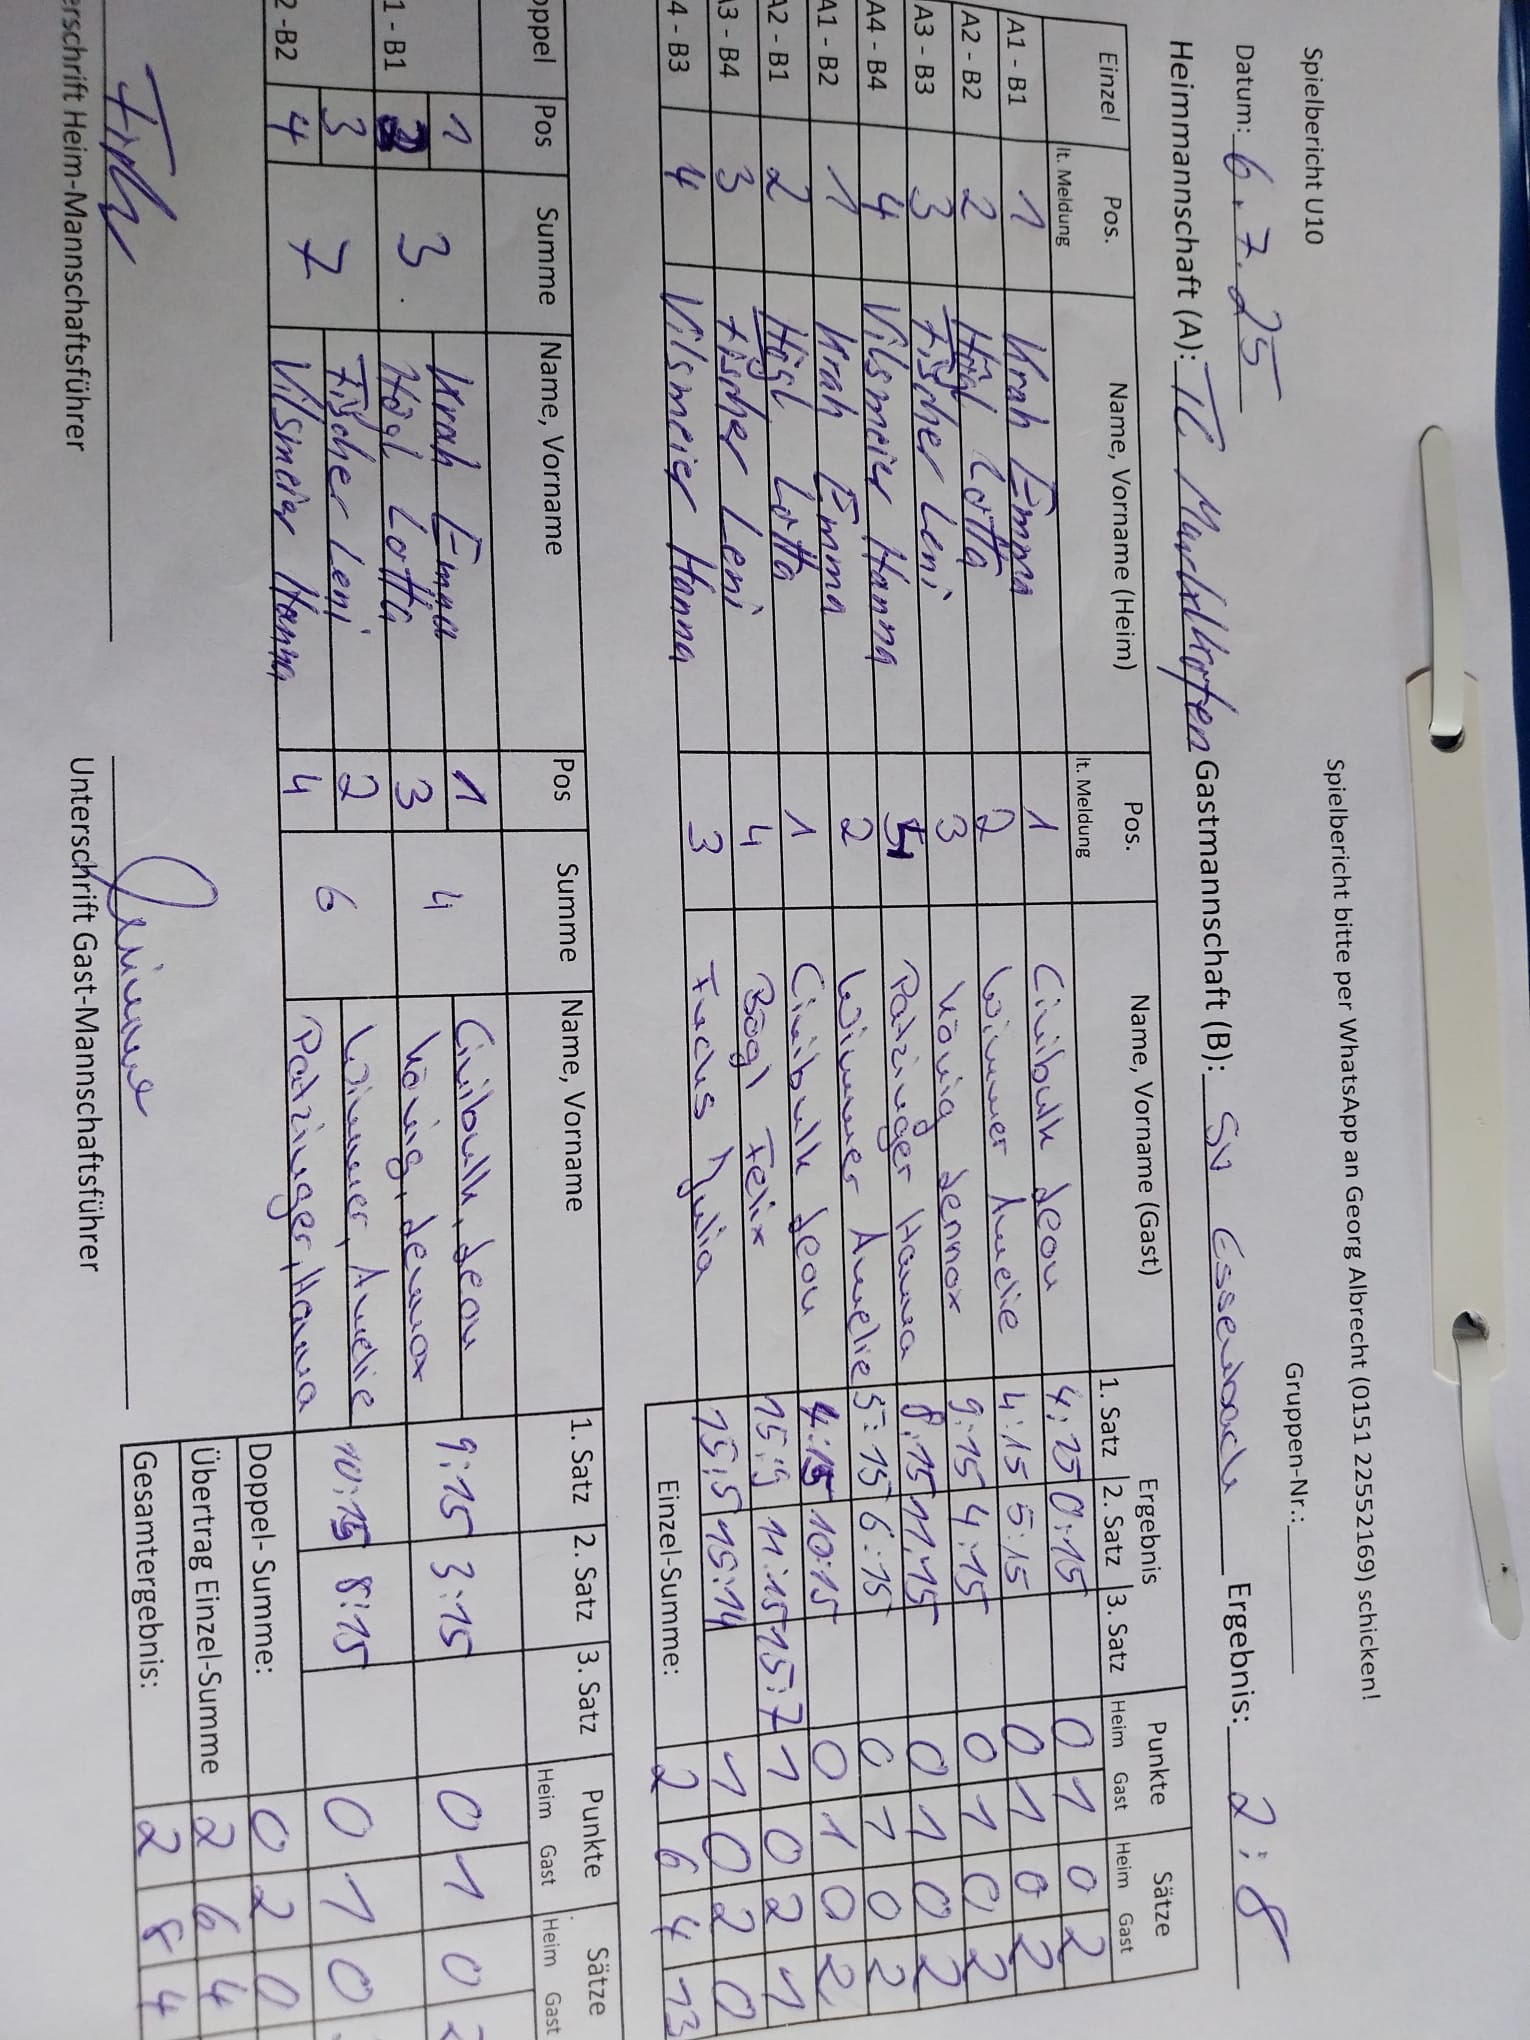 Spielbericht U10
Spielbericht bitte per WhatsApp an Georg Albrecht (0151 22552169) schicken!
Gruppen-Nr.:
Datum: 6.7.25
Heimmannschaft (A): TC Gastmannschaft (B): SV Essenbach Ergebnis: 2:8
Einzel Pos. lt. Meldung Name, Vorname (Heim) Pos. lt. Meldung Name, Vorname (Gast) Ergebnis Punkte Sätze
1. Satz 2. Satz 3. Satz Heim Gast Heim Gast
A1 - B1 1 Krah Emma 1 Leon 4:15 0:15 0 1 0 2
A2 - B2 2 Högl Lotta 2 Wimmer Amelie 4:15 5:15 0 1 0 2
A3 - B3 3 Fischer Leni 3 König Lennox 9:15 4:15 0 1 0 2
A4 - B4 4 Vilsmeier Hanna Patzinger Hanna 8:15 11:15 0 1 0 2
A1 - B2 1 Krah Emma 2 Wimmer Amelie 5:15 6:15 0 1 0 2
A2 - B1 2 Högl Lotta 1 Leon 4:15 10:15 0 1 0 2
A3 - B4 3 Fischer Leni 4 Bögl Felix 15:9 11:15 15:7 1 0 2 1
4 - B3 4 Vilsmeier Hanna 3 Fuchs Julia 15:5 15:14 1 0 2 0
Einzel-Summe: 2 6 4 13
oppel Pos Summe Name, Vorname Pos Summe Name, Vorname 1. Satz 2. Satz 3. Satz Punkte Sätze
Heim Gast Heim Gast
1 Krah Emma 1 Leon
1 - B1 2 3 Högl Lotta 3 4 König, Lennox 9:15 3:15 0 1 0
3 Fischer Leni 2 Wimmer, Amelie
2 -B2 4 7 Vilsmeier Hanna 4 6 Patzinger, Hanna 10:15 8:15 0 1 0
Doppel- Summe: 0 2 0
Übertrag Einzel-Summe 2 6 4
Gesamtergebnis: 2 8 4
erschrift Heim-Mannschaftsführer
Unterschrift Gast-Mannschaftsführer